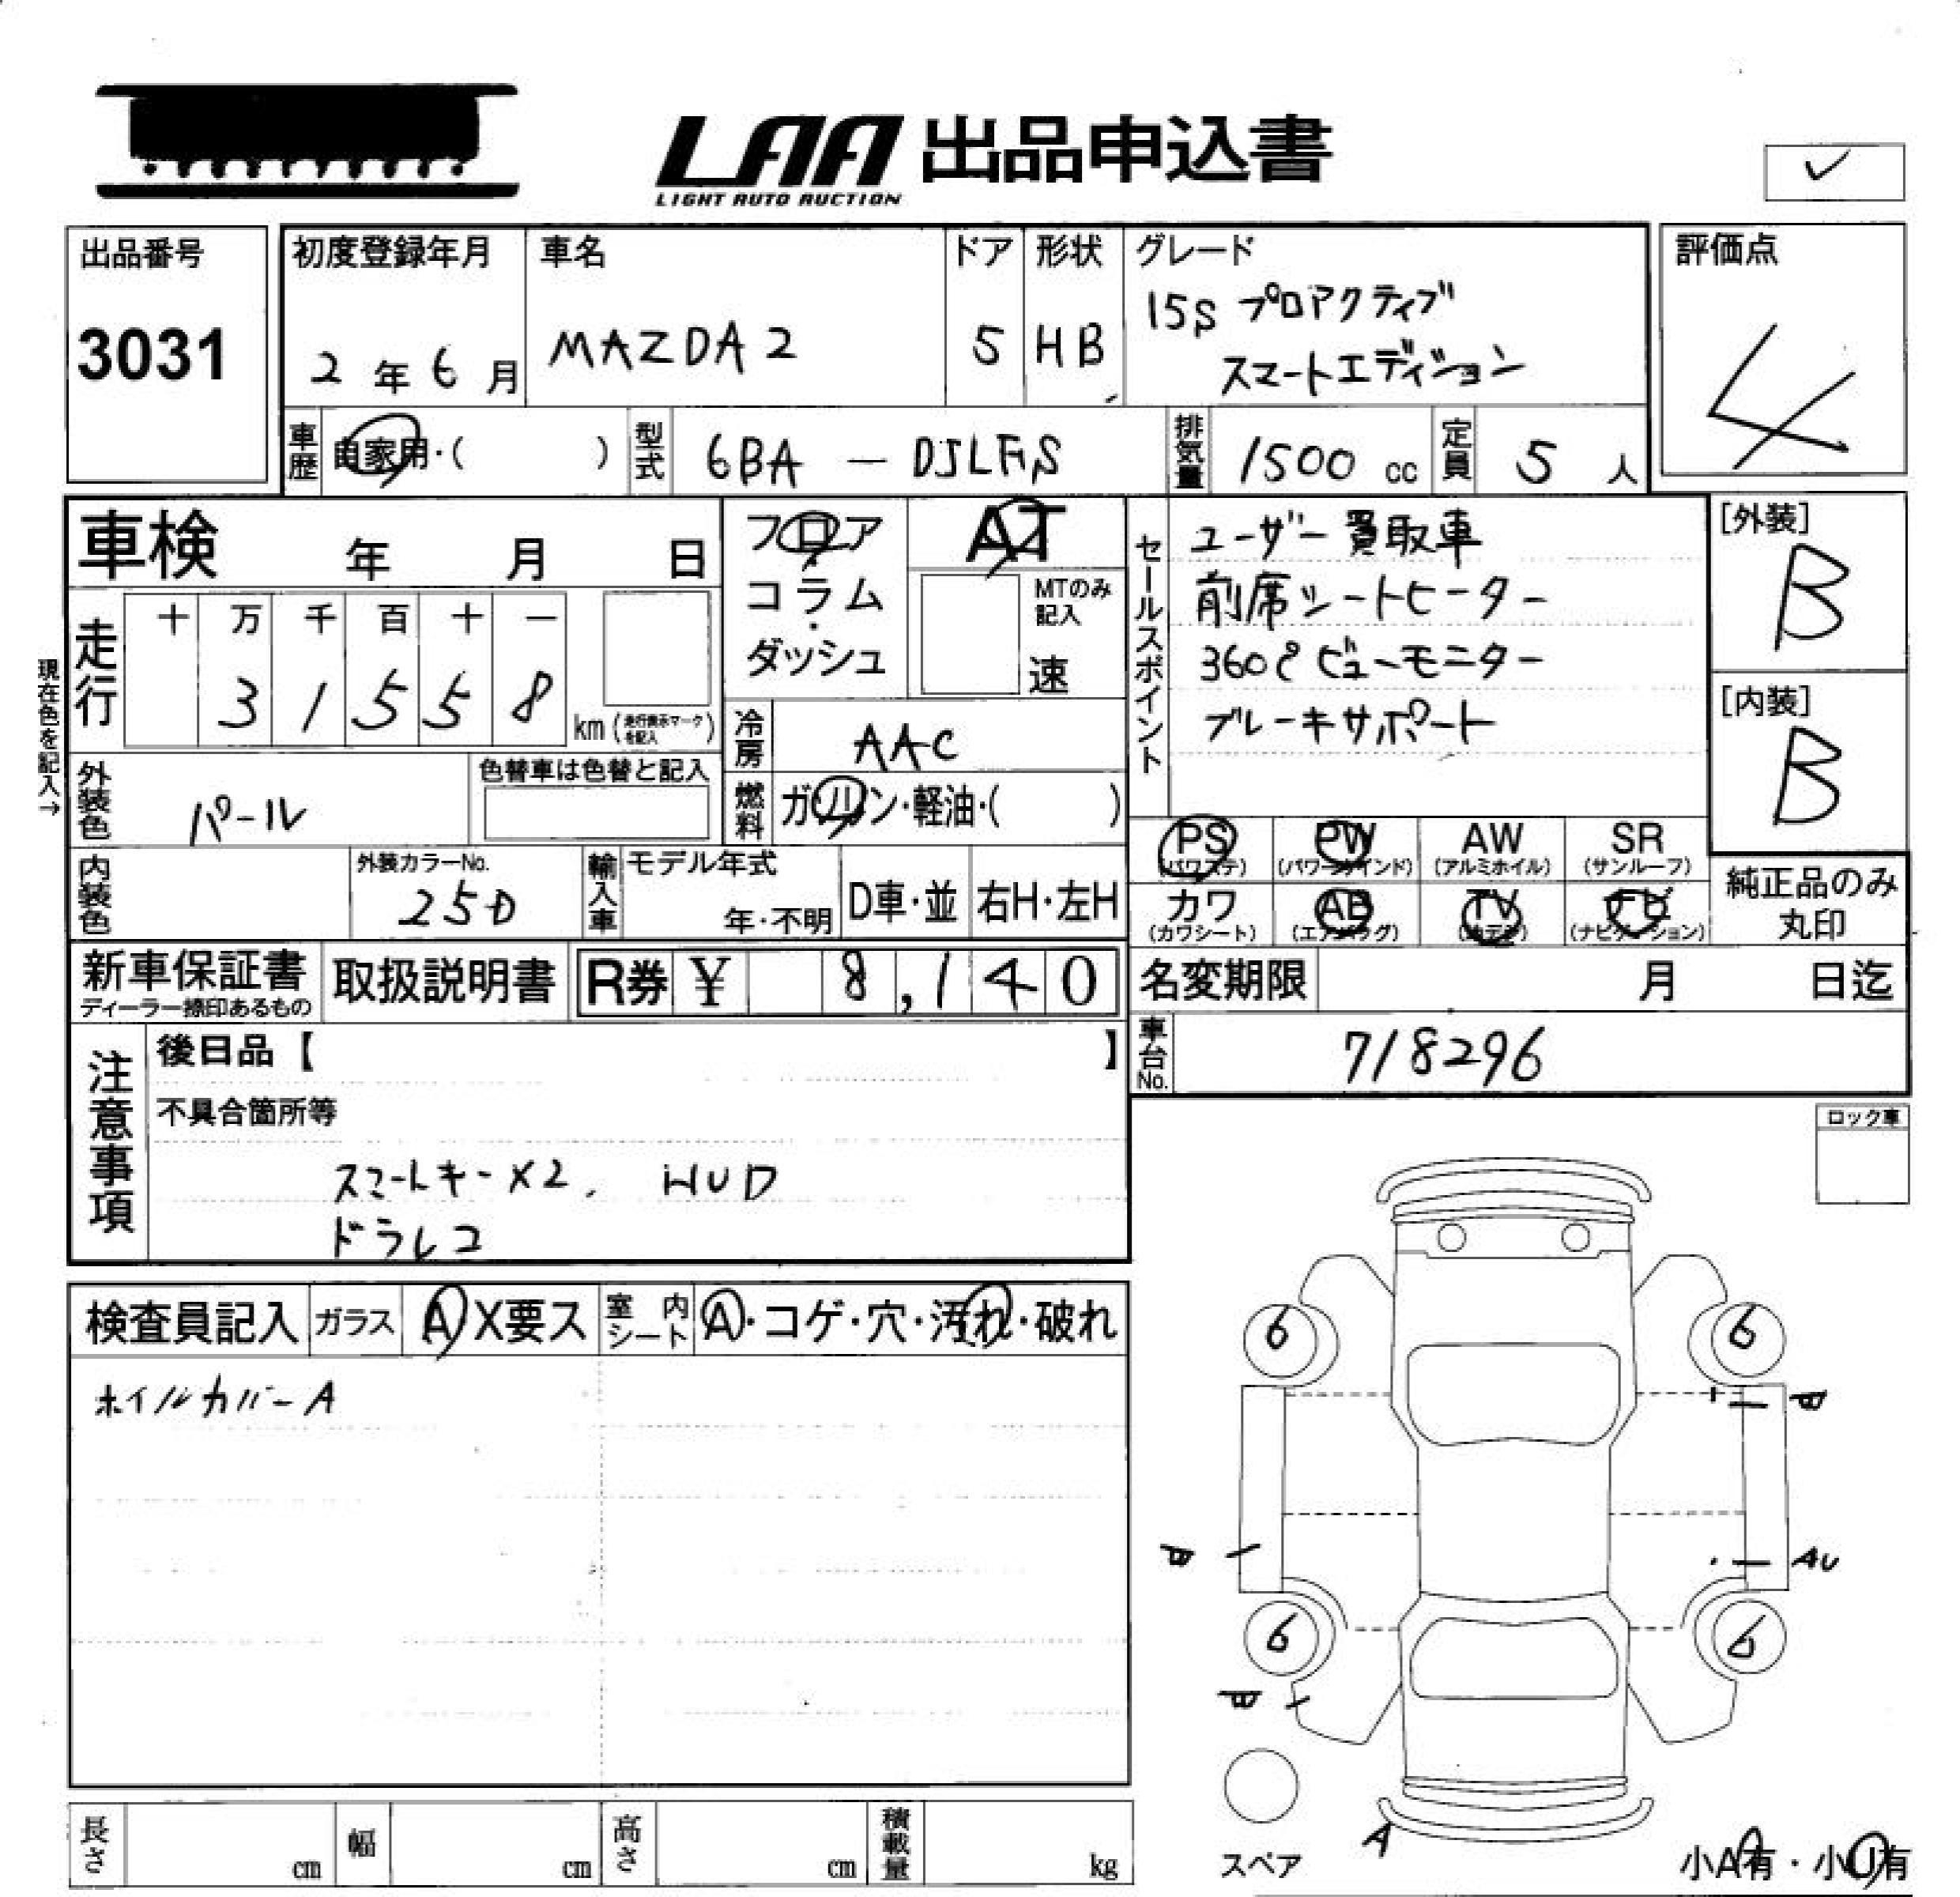 LAA 出品申込書
LIGHT AUTO AUCTION
✓
出品番号
3031
初度登録年月
2年6月
車名
MAZDA2
ドア
5
形状
HB
グレード
15S プロアクティブ
スマートエディション
評価点
4
車歴
自家用・( )
型式
6BA - DJLFS
排気量
1500 cc
定員
5 人
車検 年 月 日
フロア・コラム・ダッシュ
AT
MTのみ記入
速
走行
十 万 千 百 十 一
3 1 5 5 8
km (走行表示マークを記入)
現在色を記入→
冷房
AAC
外装色
パール
色替車は色替と記入
燃料
ガソリン・軽油・( )
内装色
外装カラーNo.
25D
輸入車
モデル年式
年・不明
D車・並
右H・左H
セールスポイント
ユーザー買取車
前席シートヒーター
360°ビューモニター
ブレーキサポート
[外装]
B
[内装]
B
PS (パワステ)
PW (パワーウインド)
AW (アルミホイル)
SR (サンルーフ)
カワ (カワシート)
AB (エアバッグ)
TV
ナビ (ナビゲーション)
純正品のみ
丸印
新車保証書
ディーラー捺印あるもの
取扱説明書
R券 ¥ 8,140
名変期限 月 日迄
車台No.
718296
注意事項
後日品【 】
不具合箇所等
スマートキー×2, HUD
ドラレコ
ロック車
検査員記入
ガラス
A X要ス
室内シート
A・コゲ・穴・汚れ・破れ
ホイルカバーA
6
6
B
B
AU
6
6
B
A
スペア
小A有・小U有
長さ cm
幅 cm
高さ cm
積載量 kg